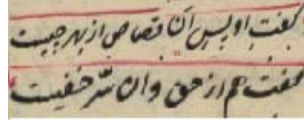 گفت او پس آن قصاص از بهر چیست
گفت هم از حق و آن سر خفیست